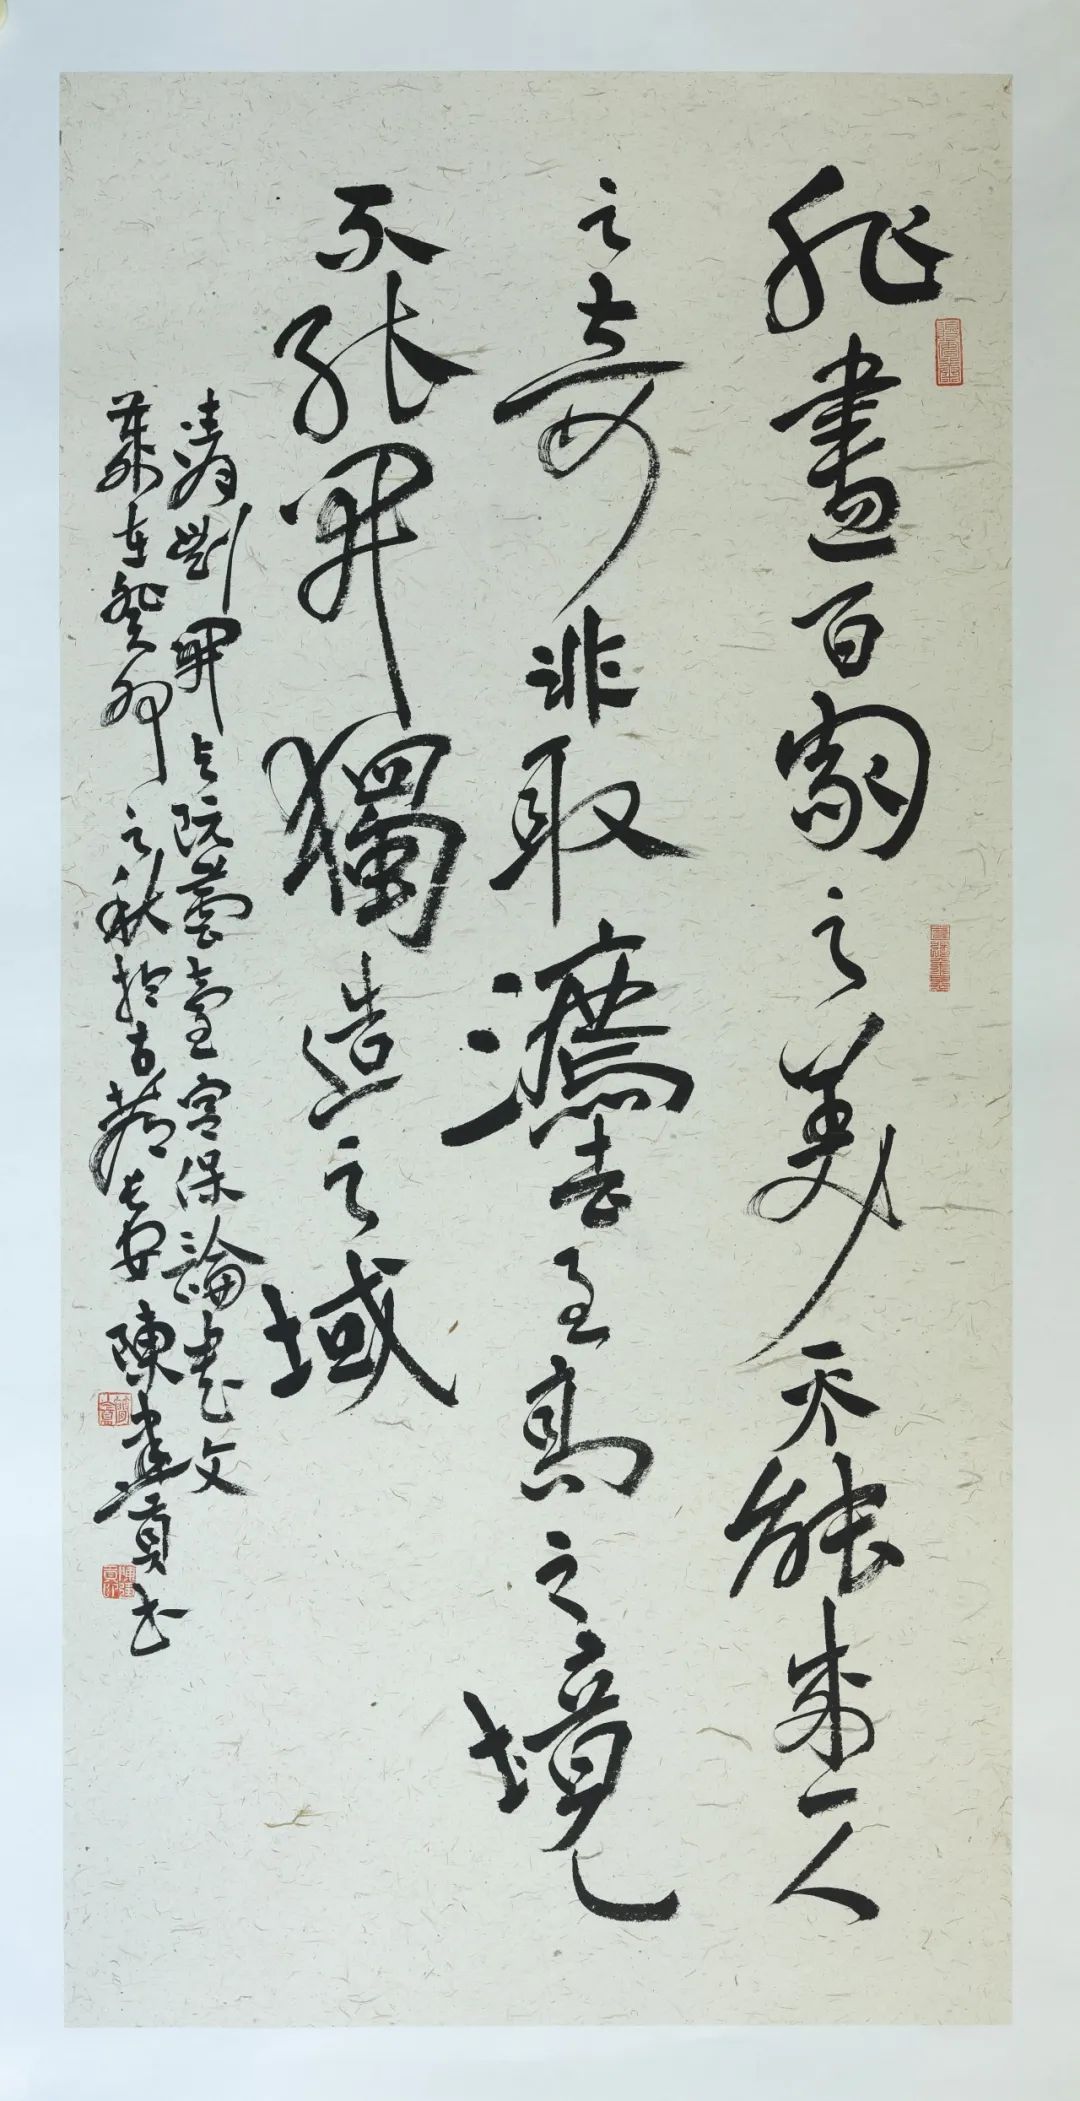 非盡百家之美不能成一人
之奇非取灋至高之境
不能開獨造之域
清劉開与阮蕓臺宮保論書文
歲在癸卯之秋於古都長安陳建貢書